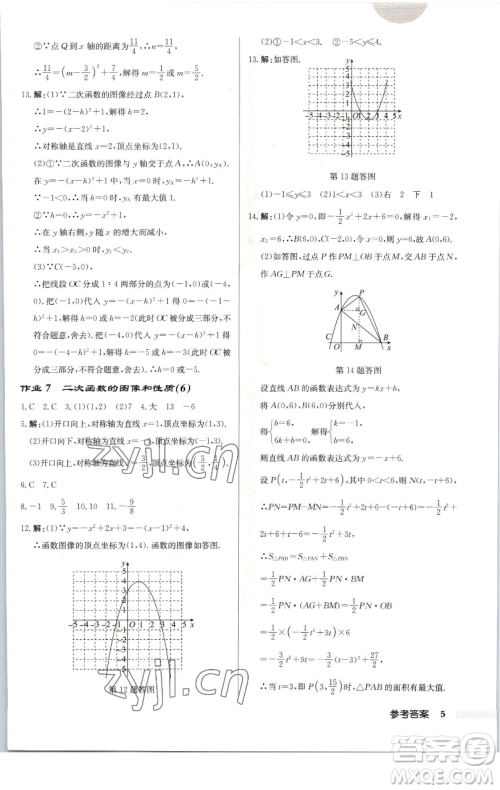 ②∵点 Q 到 x 轴的距离为 11/4, ∴n=11/4.
∴11/4=(m-3/2)²+7/4. 解得 m=1/2 或 5/2.
13. 解:(1)∵二次函数的图像经过点 B(2,1),
∴1=-(2-h)²+1. 解得 h=2.
∴对称轴是直线 x=2,顶点坐标为(2,1).
(2)①∵二次函数的图像与 y 轴交于点 A,∴A(0,yA).
∴当 x=0 时,yA=-h²+1.
∴当 h=0 时,yA 有最大值 1.
②当 h=0 时,二次函数的表达式为 y=-x²+1.
∴对称轴为 y 轴.
∴当 x≥0 时,y 随着 x 的增大而减小.
∴当 x₁>x₂>0 时,y₁<y₂.
③∵C(-5,0),
∴把线段 OC 分成 1∶4 两部分的点为(-1,0)或
(-4,0). 把(-1,0)代入 y=-(x-h)²+1,得 h=0
或 h=-2(当 h=-2 时,线段 OC 被分成三部分,不
符合题意,舍去). 把(-4,0)代入 y=-(x-h)²+1,
得 h=-5 或 h=-3(当 h=-3 时,线段 OC 被分成三
部分,不符合题意,舍去).
∴h 的值为 0 或-5.
作业 7 二次函数的图像和性质(6)
1. C 2. C 3. (1)(1,2) (2)7 4. 大 13 -6
5. 解:(1)开口向上,对称轴为直线 x=1,顶点坐标为(1,3).
(2)开口向下,对称轴为直线 x=-1,顶点坐标为(-1,3).
(3)开口向上,对称轴为直线 x=3/2,顶点坐标为(3/2,1/4).
6. C 7. C
8. -1 9. 5/3 10. 10 11. -9/8
12. 解:(1)∵y=-x²+2x+3=-(x-1)²+4,
∴函数图像的顶点坐标为(1,4). 函数图像如答图.
第 12 题答图
(2)①-1<x<3. ②-5<y<3.
13. 解:如答图.
第 13 题答图
(1)-1≤y≤3 (2)1<x<3 (3)右 2 下 1
14. 解:(1)令 y=0,即-1/2x²+2x+6=0,解得 x₁=-2,
x₂=6,∴B(6,0). 令 x=0,得 y=6,∴A(0,6).
(2)如答图,过点 P 作 PM⊥OB 于点 M,交 AB 于点 N,
作 AG⊥PM 于点 G.
第 14 题答图
设直线 AB 的函数表达式为 y=kx+b.
将点 A(0,6),B(6,0)分别代入,
得{b=6, 6k+b=0. 解得{k=-1, b=6.
则直线 AB 的函数表达式为 y=-x+6.
设 P(t,-1/2t²+2t+6),其中 0<t<6,则 N(t,-t+6),
∴PN=PM-MN=-1/2t²+2t+6-(-t+6)=-1/2t²+
2t+6+t-6=-1/2t²+3t.
∴S△PAB=S△PAN+S△PBN
=1/2PN·AG+1/2PN·BM
=1/2PN·(AG+BM)=1/2PN·OB
=1/2×(-1/2t²+3t)×6
=-3/2t²+9t=-3/2(t-3)²+27/2.
∴当 t=3,即 P(3,15/2)时,△PAB 的面积有最大值.
参考答案 5
zyjl.cn
zyjl.cn